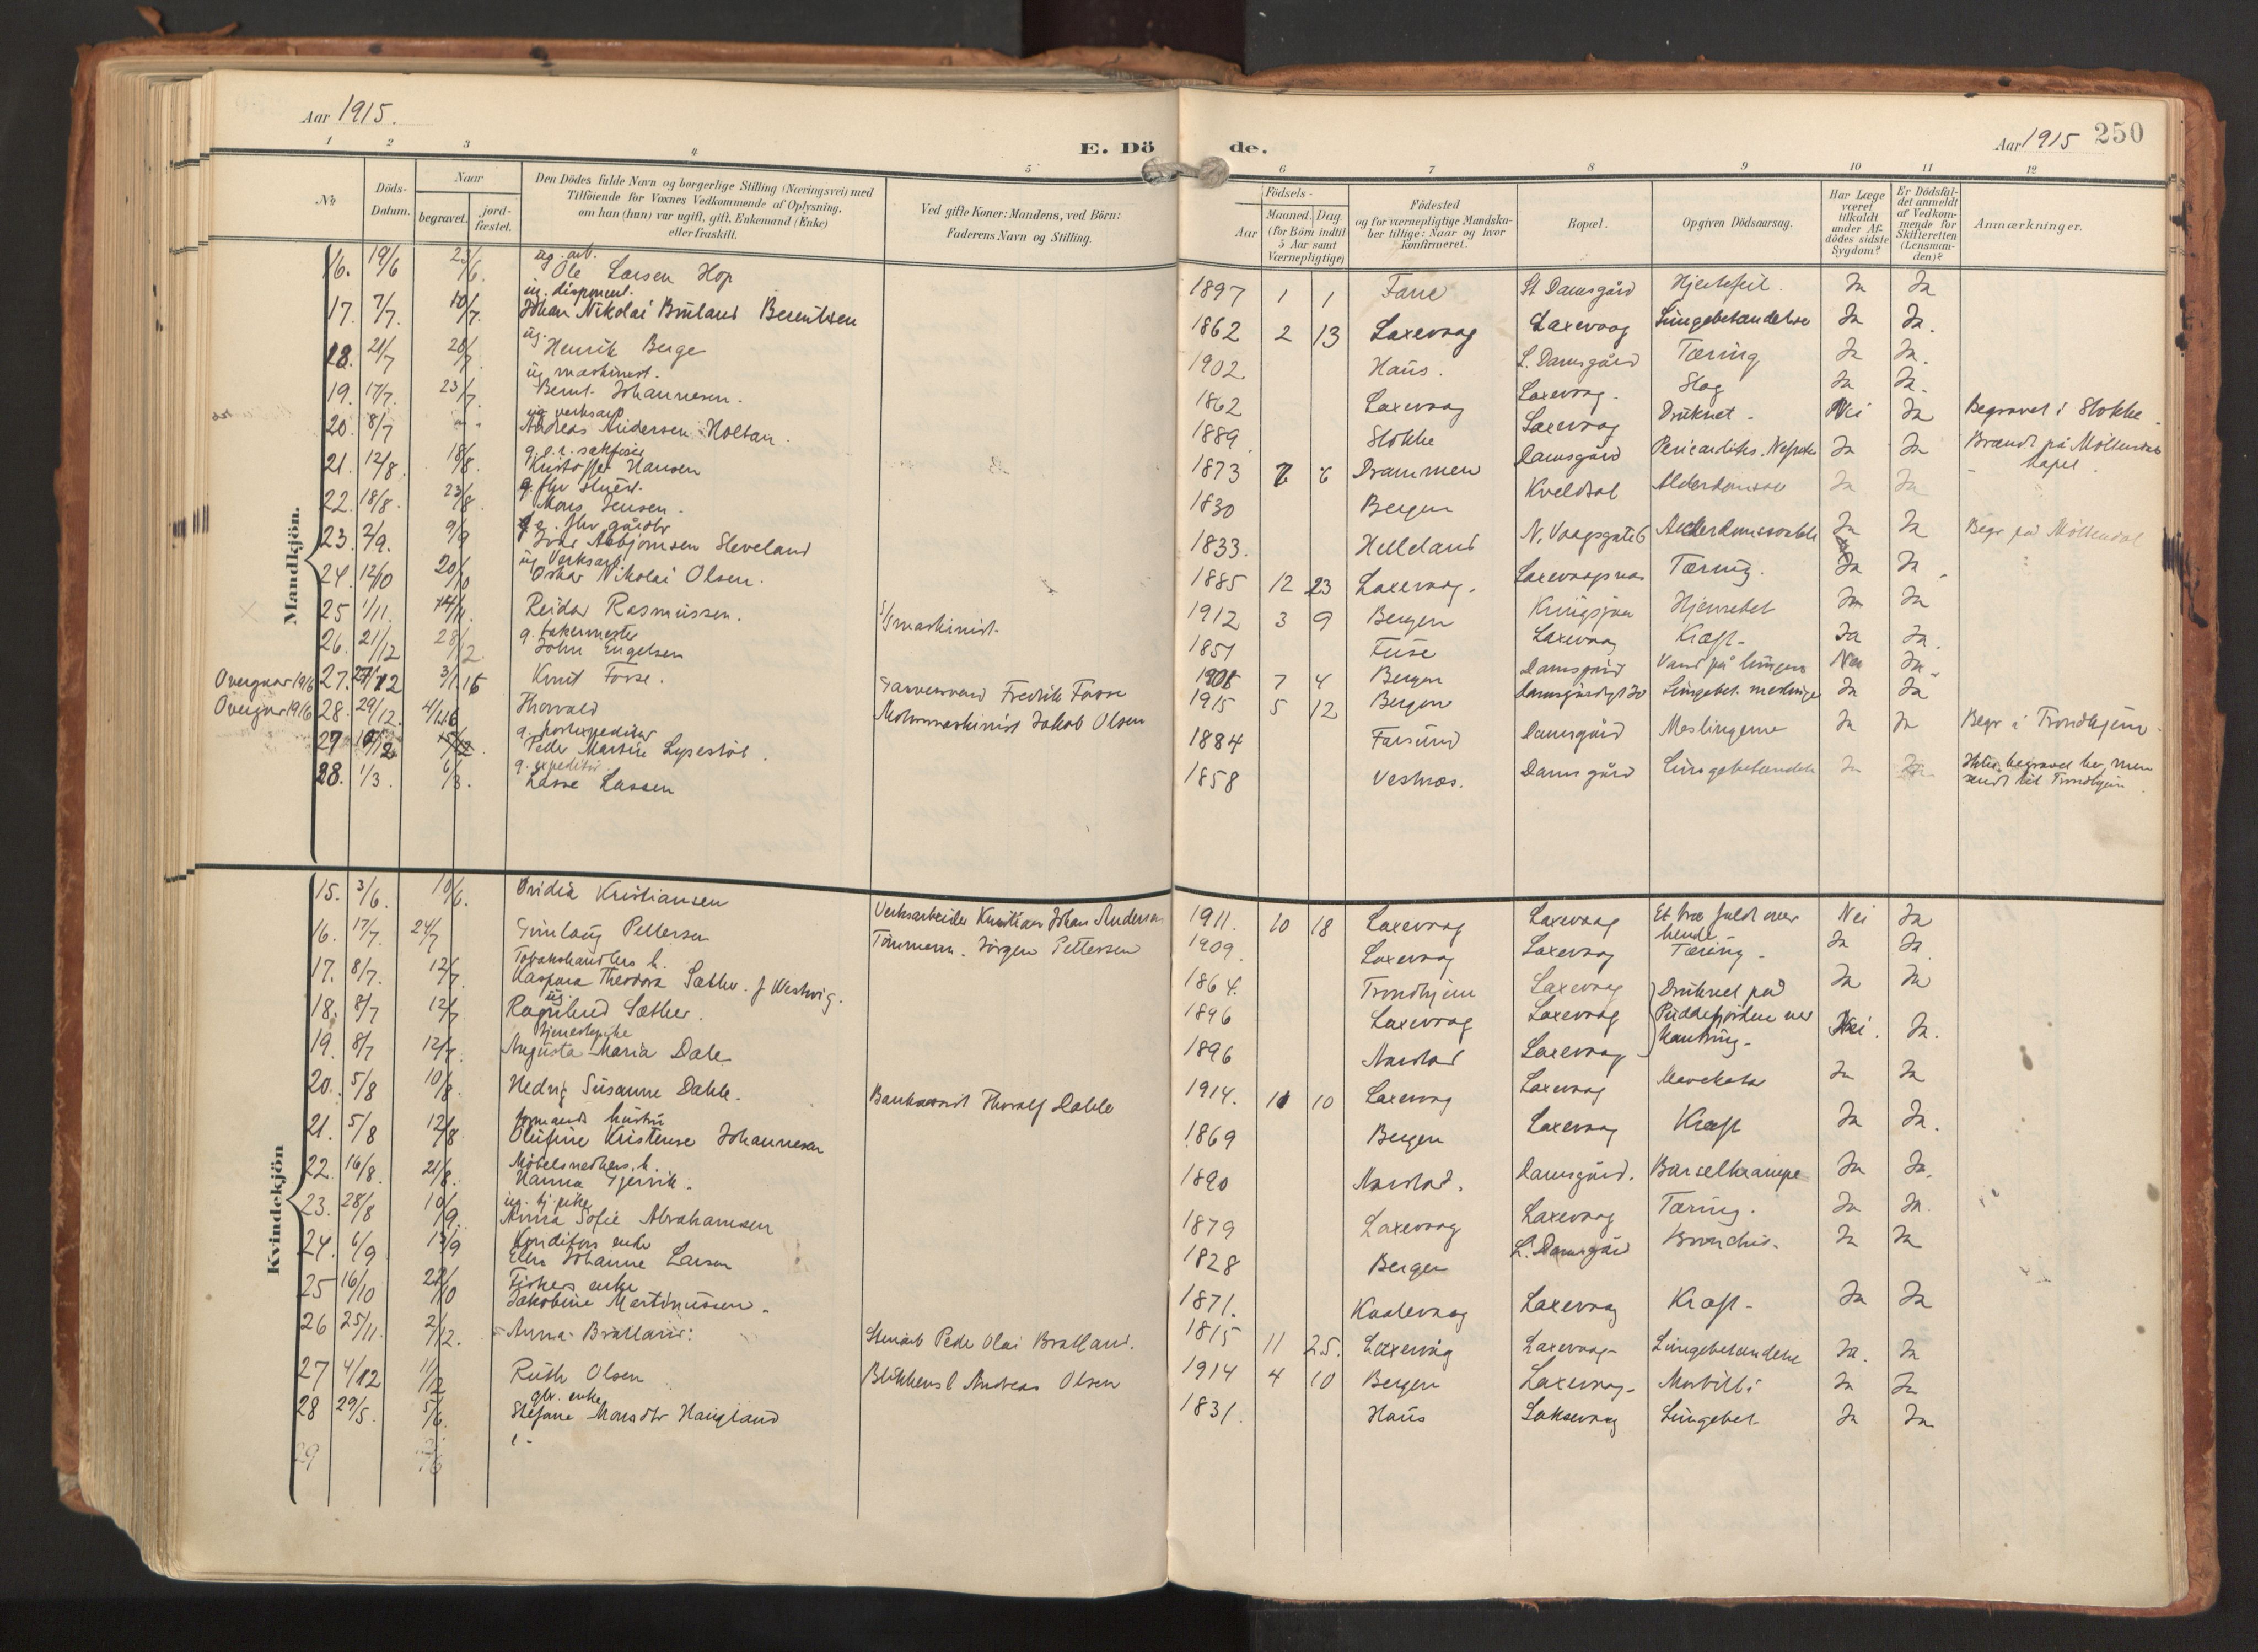 Aar 1915.
E. Döde.
Aar 1915 250
1 2 3 4 5 6 7 8 9 10 11 12
No
Döds-Datum.
Naar
begravet. jord-fæstet.
Den Dödes fulde Navn og borgerlige Stilling (Næringsvei) med
Tilföiende for Voxnes Vedkommende af Oplysning,
om han (hun) var ugift, gift, Enkemand (Enke)
eller fraskilt.
Ved gifte Koner: Mandens, ved Börn:
Faderens Navn og Stilling.
Födsels-
Aar Maaned. Dag.
(for Börn indtil
5 Aar samt
Værnepligtige)
Födested
og for værnepligtige Mandska-
ber tillige: Naar og hvor
Konfirmeret.
Bopæl.
Opgiven Dödsaarsag.
Har Læge
været
tilkaldt
under Af-
dödes sidste
Sygdom?
Er Dödsfal-
det anmeldt
af Vedkom-
mende for
Skifteretten
(Lensman-
den)?
Anmærkninger.
Mandkjön.
ug. arb.
16. 19/6 23/6. Ole Larsen Hop 1897 1 1 Fane St. Damsgård Hjertefeil. Ja Ja
ug. disponent.
17. 7/7. 10/7. Johan Nikolai Bruland Berentsen 1862 2 13 Laxevaag Laxevaag Lungebetændelse Ja Ja.
ug.
18. 21/7 28/7 Henrik Berge 1902 Haus. L. Damsgård Tæring Ja Ja.
ug maskinist.
19. 17/7. 23/7. Bernt Johannesen. 1862 Laxevaag Laxevaag. Slag Ja Ja.
ug verksarb
20. 8/7 Andreas Andersen Holtan. 1889. Stokke Laxevaag Druknet. Nei Ja Begravet i Stokke.
21. 12/8. 18/8. Kristoffer Hansen 1873 7 6 Drammen Damsgård Ja Ja Brændt på Möllendal kapel
22. 18/8. 23/8 Mons Jensen. 1830 Bergen Kveldsol Ja Ja
g. fhv gårdbr
23. 2/9. 9/9 Ivar Asbjörnsen Sleveland 1833. Helleland N. Vaagsgate 6 Ja Ja Begr på Möllendal
ug Verksarb.
24. 12/10 20/10 Oskar Nikolai Olsen. 1885 12 23 Laxevaag. Laxevaagsnes Tæring. Ja Ja
25 1/11. Reidar Rasmussen. S/S maskinist. 1912 3 9 Bergen Kringsjaa Ja Ja
g. bakermester
26. 21/12 28/12. John Engelsen 1851 Fuse Laxevaag Kræft- Ja Ja.
Overgaar 1916 27. 27/12 3/1.16 Knut Fosse. Garversvend Fredrik Fosse 1908 7 4 Bergen Damsgård Vand på lungen Nei Ja.
Overgår 1916 28. 29/12. 4/1.16 Thorvald Motormaskinist Jakob Olsen 1915 5 12 Bergen Damsgårdgt 30 Lungebet. meslinger Ja Ja
g. postexpeditör
27 Peder Martin Lysestöl. 1884 Farsund Damsgård Meslingerne Ja Ja Begr i Trondhjem
g. expeditör
28. 1/3. 6/3. Lasse Lassen 1858 Vestnes. Damsgård Lungebetændelse Ja Ja Ikke begravet her, men
sendt til Trondhjem.
Kvindekjön
15. 3/6. 10/6. Ovidia Kristiansen Verksarbeider Kristian Johan Andersen 1911. 10 18 Laxevaag Laxevaag Et træ faldt over hende Nei Ja
16. 17/7. 24/7 Gunlaug Pettersen Tömmerm. Jörgen Pettersen 1909. Laxevaag Laxevaag Tæring- Ja Ja
Tobakshandlers h.
17. 8/7. 12/7. Kaspara Theodora Sæther. f Westvig. 1864. Trondhjem Laxevaag Druknet paa Ja Ja
ug.
18. 8/7 12/7 Ragnhild Sæther. 1896 Laxevaag Laxevaag Puddefjorden ved
tjenestepike
19. 8/7 12/7. Augusta Maria Dale 1896 Laxevaag Kantring. Nei. Ja.
20. 5/8 10/8. Hedvig Susanne Dahle. Bankassist Thoralf Dahle 1914. 10 Laxevaag Laxevaag Ja Ja
formands hustru
21. 5/8 12/8 Olufine Kristense Johannesen 1869 Bergen Laxevaag Kræft Ja Ja.
Möbelsnedkers h.
22. 16/8. 21/8. Hanna Gjervik. 1890 Damsgård. Barselkrampe Ja Ja.
23. 28/8 10/9. Anna Sofie Abrahamsen 1879 Laxevaag Laxevaag Tæring. Ja Ja.
Konditors enke
24. 6/9. 13/9 Elen Johanne Larsen 1828 Bergen L. Damsgård Bronchit. Ja Ja
Fiskers enke
25 16/10 22/10 Jakobine Martinussen. 1871. Laxevaag Kræft- Ja Ja
26 25/11. 2/12. Anna Bratland: Stenarb Peder Olai Bratland. 1815 11 25. Laxevåg Laxevaag- Lungebetændelse Ja. Ja
27 4/12 11/12 Ruth Olsen Andreas Olsen 1914 4 10 Bergen Laxevaag. Morbilli Ja Ja
gbr. enke
28 29/5. 5/6. Stefane Monsdtr Haugland 1831. Haus Laksevaag Lungebet. Ja Ja
29